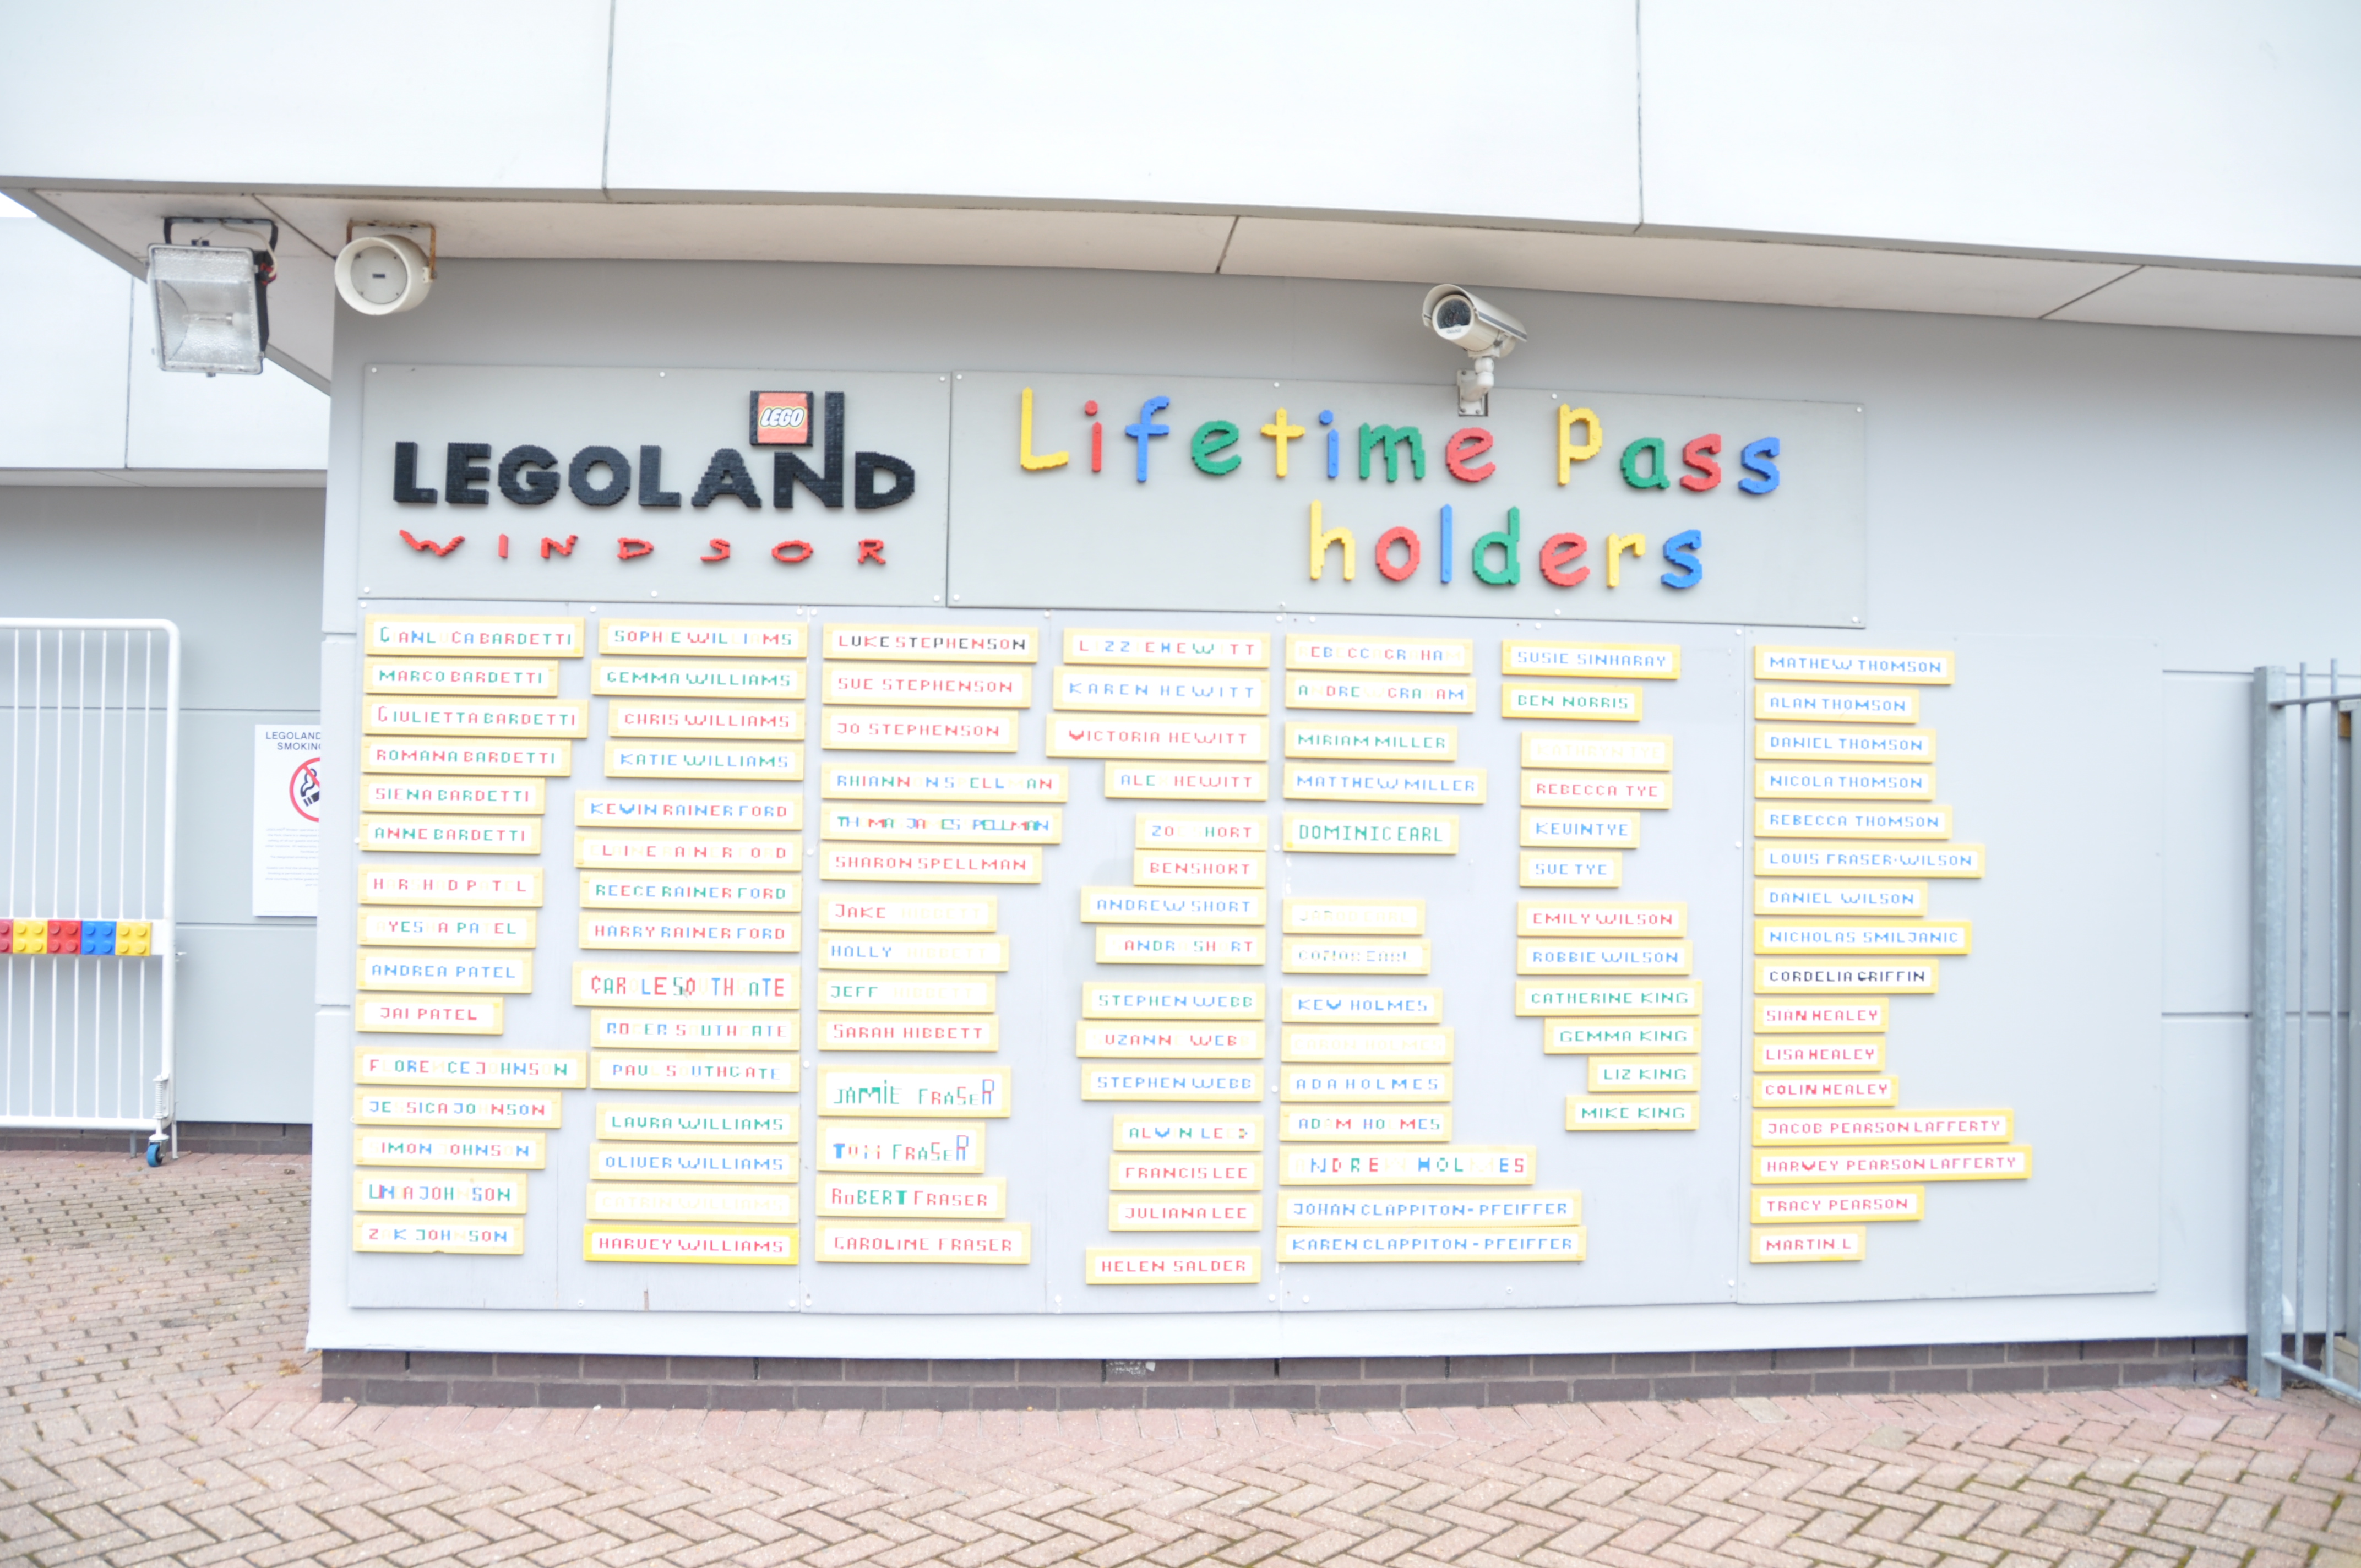 LEGO
LEGOLAND
WINDSOR
Lifetime Pass
holders
LEGOLAND
SMOKING
GIANLUCA BARDETTI
MARCO BARDETTI
GIULIETTA BARDETTI
ROMANA BARDETTI
SIENA BARDETTI
ANNE BARDETTI
PATEL
AYESHA PATEL
ANDREA PATEL
JAI PATEL
FLORENCE JOHNSON
JESSICA JOHNSON
SIMON JOHNSON
JOHNSON
ZAK JOHNSON
SOPHIE WILLIAMS
GEMMA WILLIAMS
CHRIS WILLIAMS
KATIE WILLIAMS
KEVIN RAINERFORD
RAINERFORD
REECE RAINERFORD
HARRY RAINERFORD
CAROLE SOUTHGATE
ROGER SOUTHGATE
PAUL SOUTHGATE
LAURA WILLIAMS
OLIVER WILLIAMS
WILLIAMS
HARVEY WILLIAMS
LUKE STEPHENSON
SUE STEPHENSON
JO STEPHENSON
RHIANNON SPELLMAN
JAMES SPELLMAN
SHARON SPELLMAN
JAKE HIBBETT
HOLLY HIBBETT
JEFF HIBBETT
SARAH HIBBETT
JAMIE FRASER
FRASER
ROBERT FRASER
CAROLINE FRASER
LIZZIE HEWITT
KAREN HEWITT
VICTORIA HEWITT
ALEX HEWITT
ZOE SHORT
BEN SHORT
ANDREW SHORT
SHORT
STEPHEN WEBB
SUZANNE WEBB
STEPHEN WEBB
LEE
FRANCIS LEE
JULIANA LEE
HELEN SALDER
REBECCA GRAHAM
ANDREW GRAHAM
MIRIAM MILLER
MATTHEW MILLER
DOMINIC EARL
EARL
EARL
KEV HOLMES
HOLMES
ADA HOLMES
ADAM HOLMES
ANDREW HOLMES
JOHAN CLAPPITON-PFEIFFER
KAREN CLAPPITON-PFEIFFER
SUSIE SINHARAY
BEN NORRIS
KATHRYN TYE
REBECCA TYE
KEVIN TYE
SUE TYE
EMILY WILSON
ROBBIE WILSON
CATHERINE KING
GEMMA KING
LIZ KING
MIKE KING
MATHEW THOMSON
ALAN THOMSON
DANIEL THOMSON
NICOLA THOMSON
REBECCA THOMSON
LOUIS FRASER-WILSON
DANIEL WILSON
NICHOLAS SMILJANIC
CORDELIA GRIFFIN
SIAN HEALEY
LISA HEALEY
COLIN HEALEY
JACOB PEARSON LAFFERTY
HARVEY PEARSON LAFFERTY
TRACY PEARSON
MARTIN L